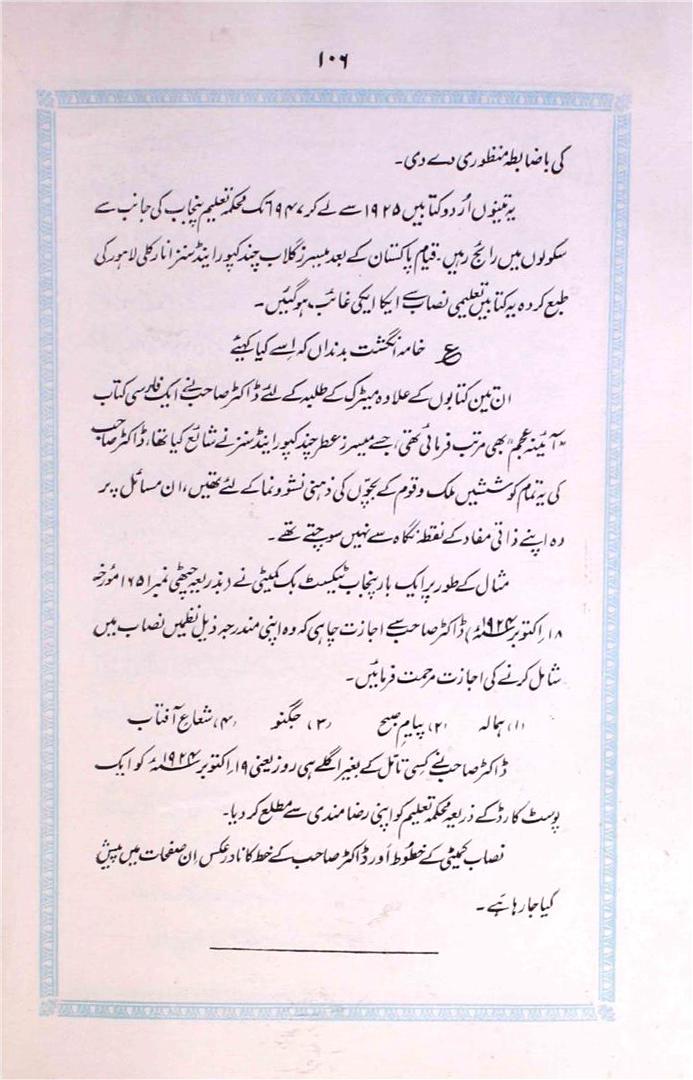 ۱۰۶
کی باضابطہ منظوری دے دی۔
یہ تینوں اُردو کتابیں ۱۹۲۵ سے لے کر ۱۹۴۷ء تک محکمہ تعلیم پنجاب کی جانب سے
سکولوں میں رائج رہیں۔ قیام پاکستان کے بعد میسرز گلاب چند کپور اینڈ سنز انارکلی لاہور کی
طبع کردہ یہ کتابیں تعلیمی نصاب سے ایکا ایکی غائب ہوگئیں۔
ع خامہ انگشت بدنداں کہ اِسے کیا کہیئے
ان تین کتابوں کے علاوہ میٹرک کے طلبہ کے لئے ڈاکٹر صاحب نے ایک فارسی کتاب
"آئینہ عجم" بھی مرتب فرمائی تھی، جسے میسرز عطر چند کپور اینڈ سنز نے شائع کیا تھا، ڈاکٹر صاحب
کی یہ تمام کوششیں ملک و قوم کے بچّوں کی ذہنی نشوونما کے لئے تھیں، ان مسائل پر
وہ اپنے ذاتی مفاد کے نقطہ نگاہ سے نہیں سوچتے تھے۔
مثال کے طور پر ایک بار پنجاب ٹیکسٹ بک کمیٹی نے (بذریعہ چٹھی نمبر ۱۶۵۱ مورخہ
۱۸؍اکتوبر ۱۹۲۴ء) ڈاکٹر صاحب سے اجازت چاہی کہ وہ اپنی مندرجہ ذیل نظمیں نصاب میں
شامل کرنے کی اجازت مرحمت فرمائیں۔
(۱) ہمالہ (۲) پیامِ صبح (۳) جگنو (۴) شعاعِ آفتاب
ڈاکٹر صاحب نے کسی تامّل کے بغیر اگلے ہی روز یعنی ۱۹؍اکتوبر ۱۹۲۴ء کو ایک
پوسٹ کارڈ کے ذریعہ محکمہ تعلیم کو اپنی رضامندی سے مطلع کردیا۔
نصاب کمیٹی کے خطوط اور ڈاکٹر صاحب کے خط کا نادر عکس اِن صفحات میں پیش
کیا جارہا ہے۔